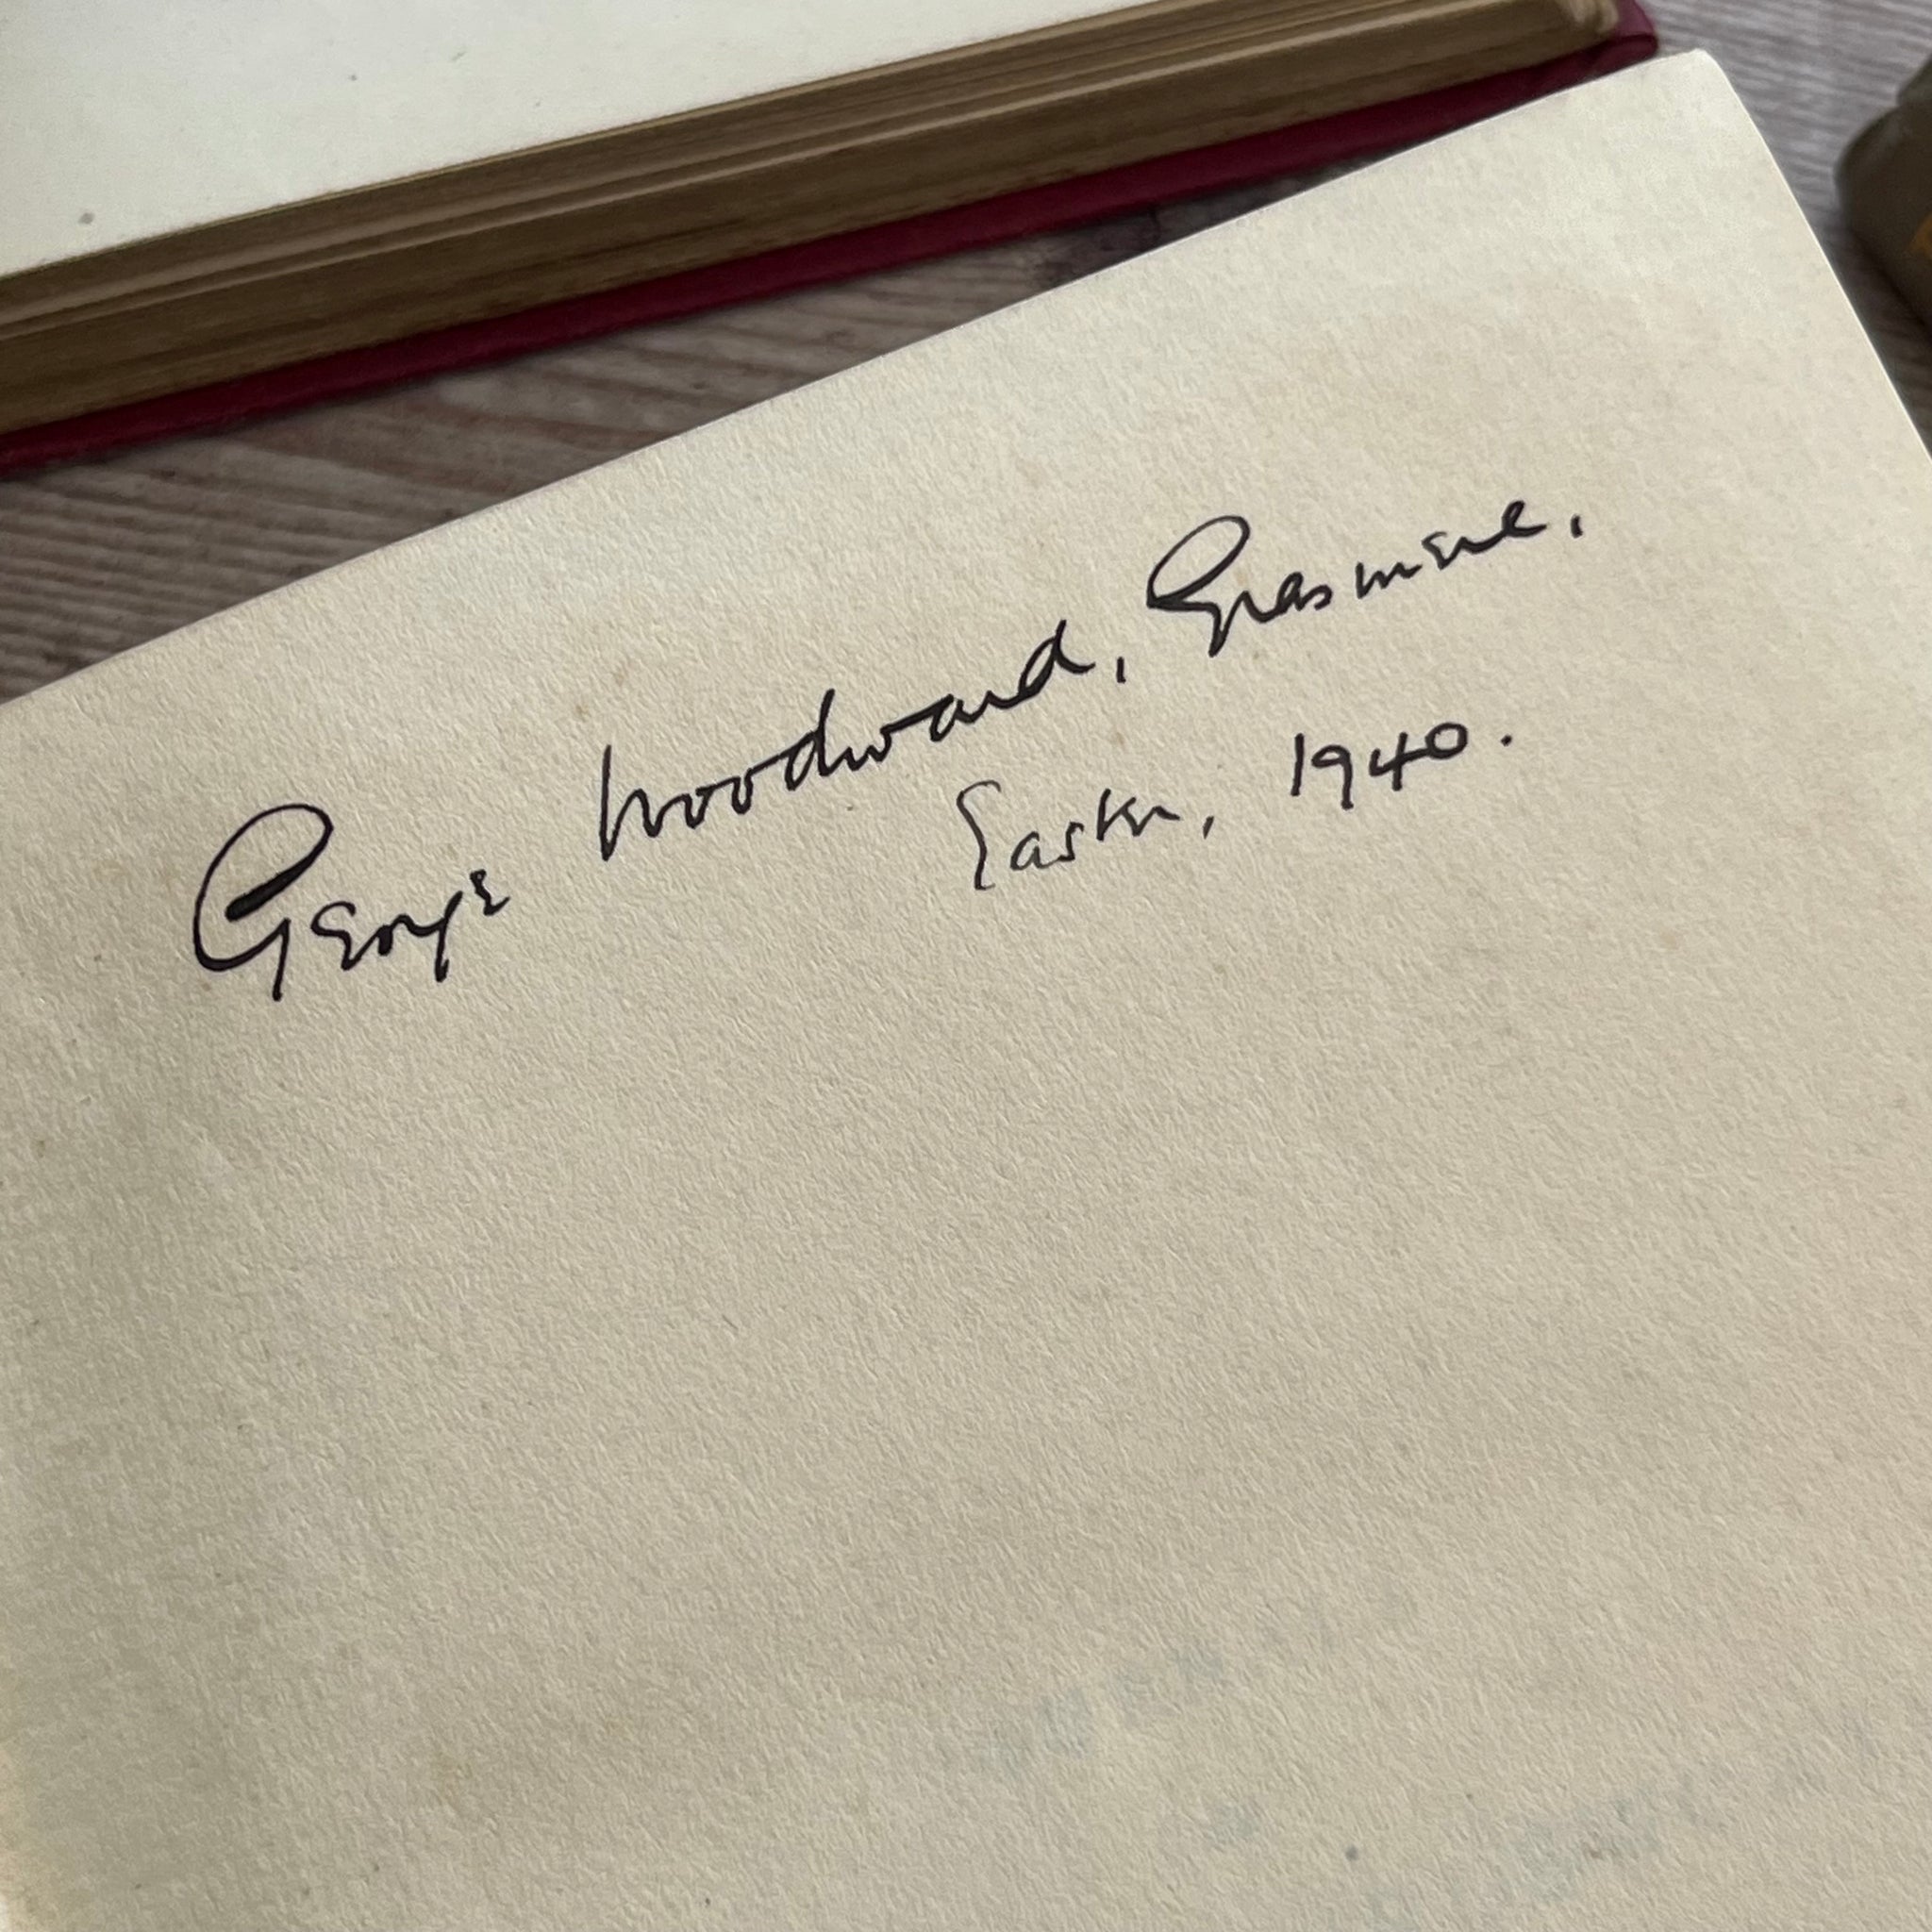 George Woodward, Grasmere,
Easter, 1940.